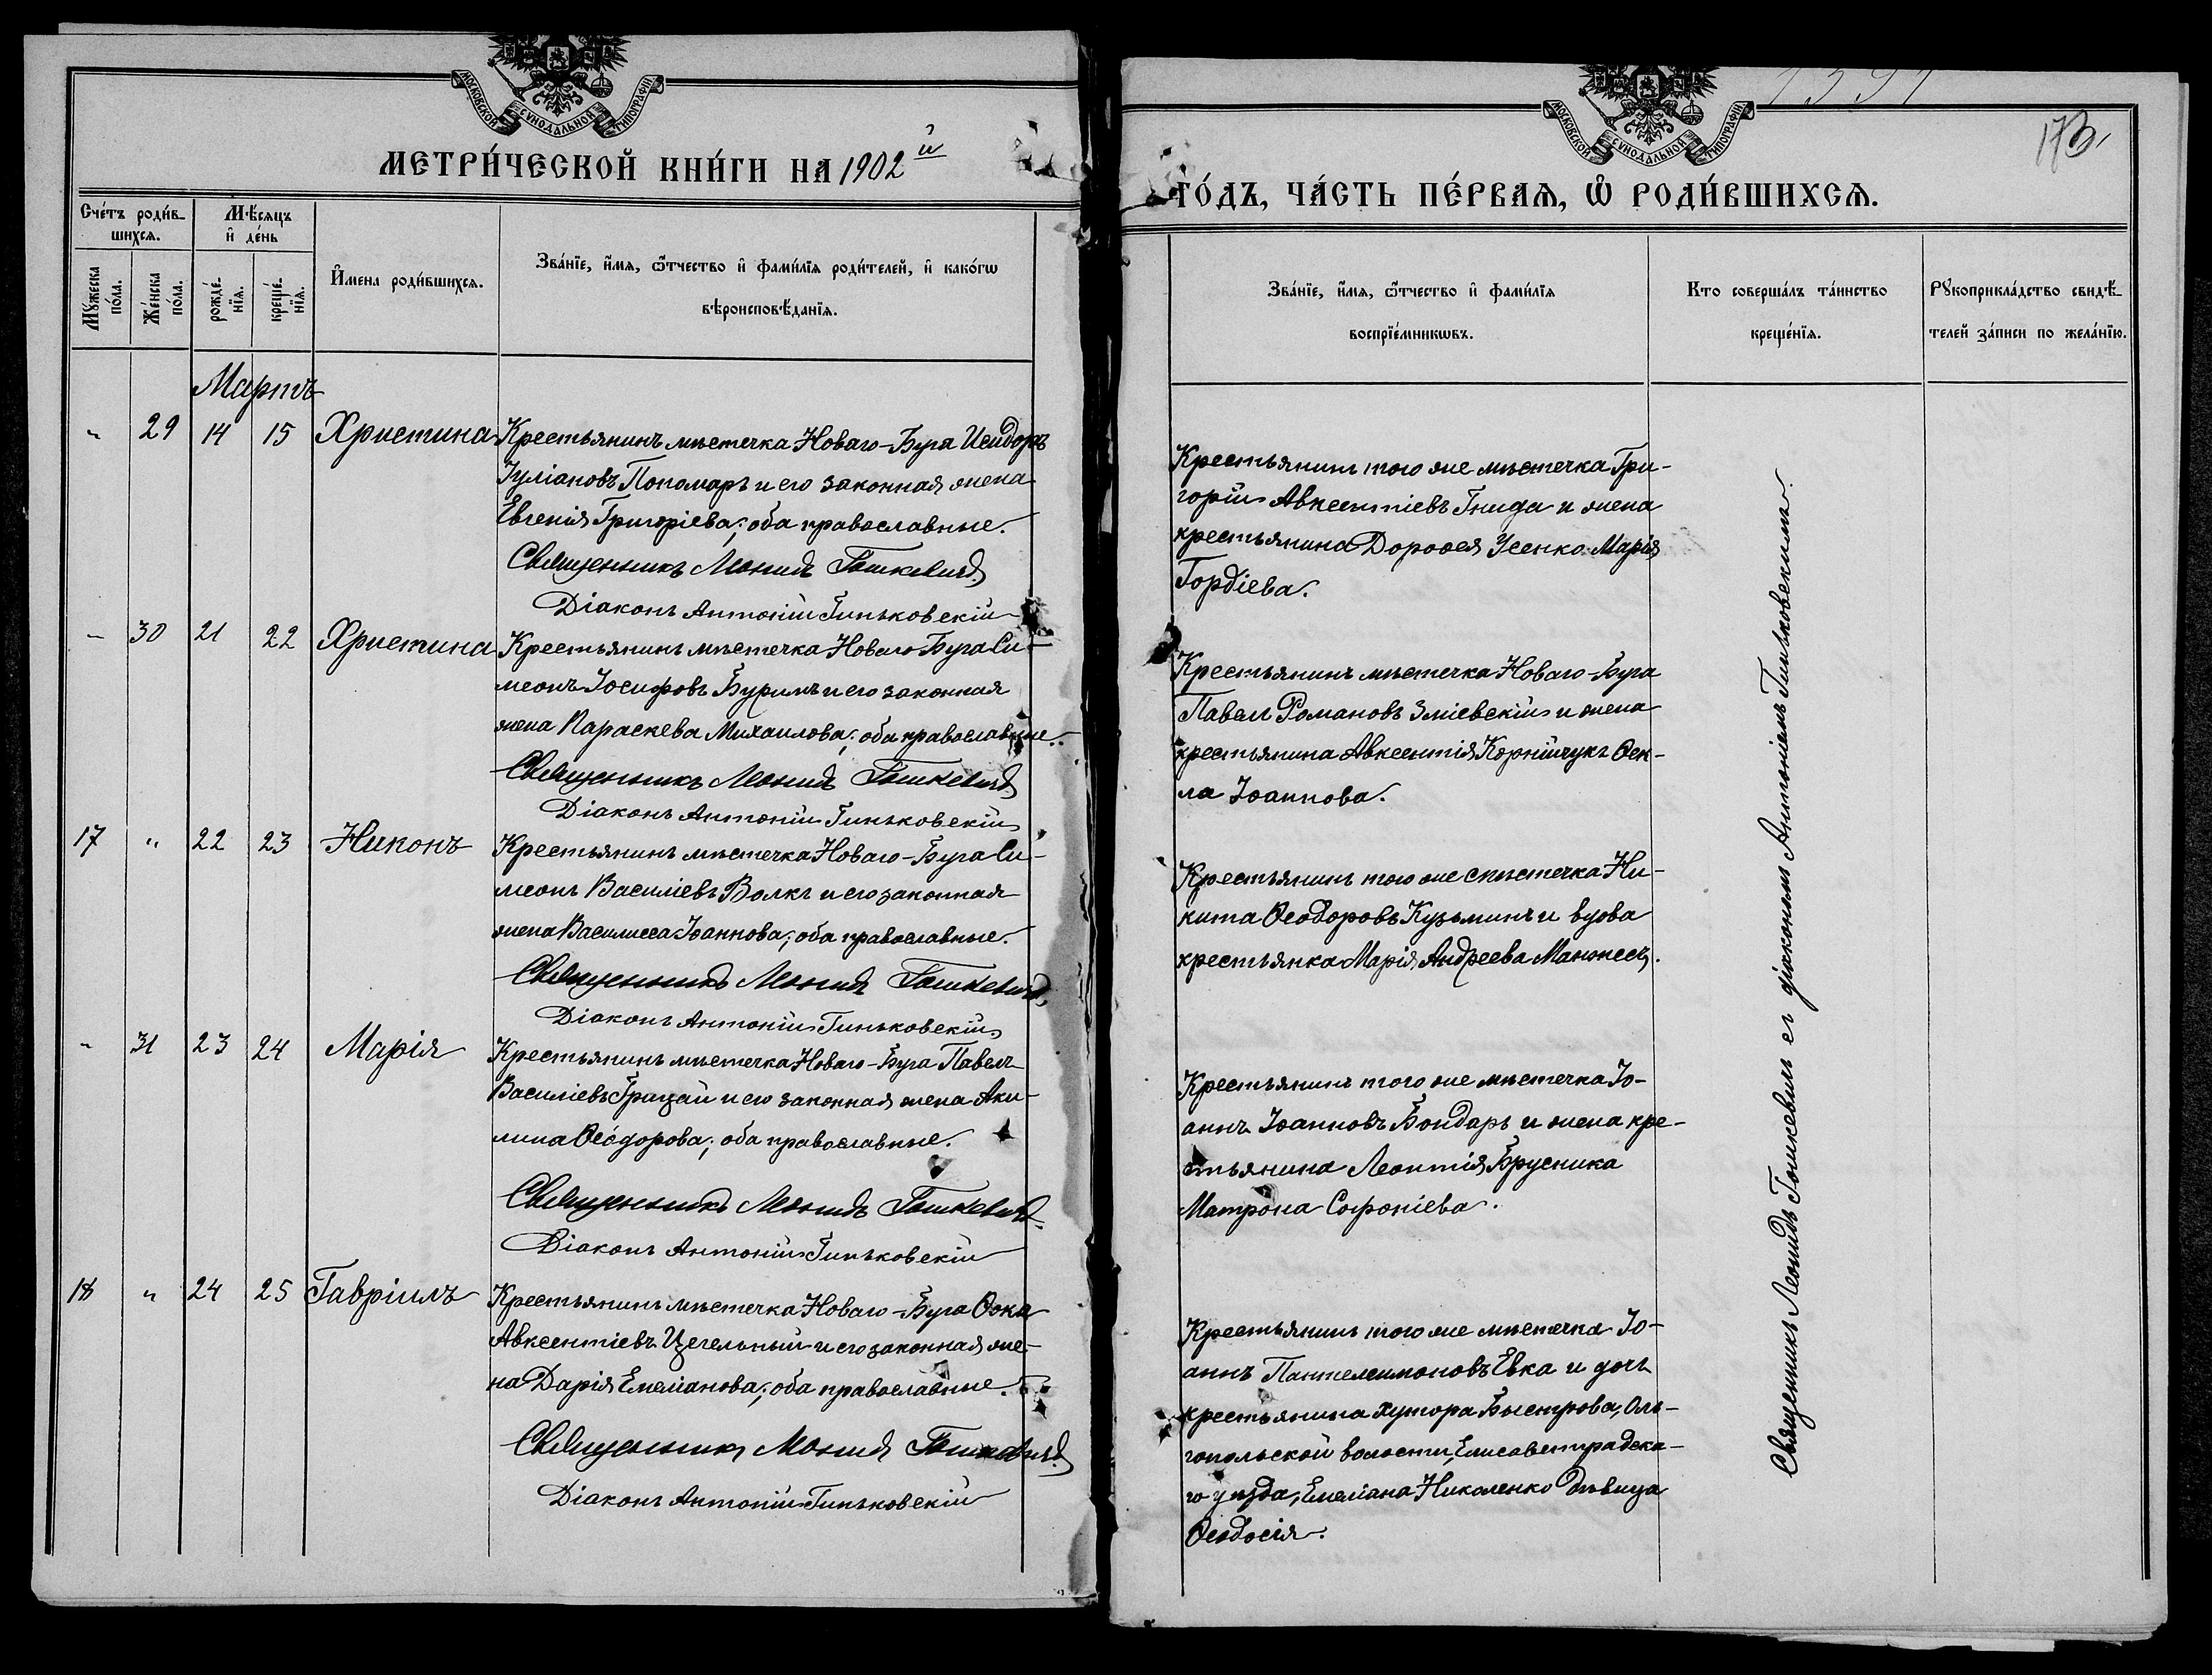 МОСКОВСКОЙ СѴНОДАЛЬНОЙ ТИПОГРАФІИ
МЕТРИ́ЧЕСКОЙ КНИ́ГИ НА 1902й
Сче́тъ роди́в-
шихсѧ.
Мѣсяцъ
и҆ де́нь
Мꙋ́жеска
по́ла.
Же́нска
по́ла.
рожде́-
нїѧ.
креще́-
нїѧ.
И҆мена роди́вшихсѧ.
Зва́нїе, и҆́мѧ, ѻ҆́тчество и҆ фами́лїѧ роди́телей, и҆ како́гѡ
вѣроисповѣ́данїѧ.
Мартъ
" 29 14 15 Христина
Крестьянинъ мѣстечка Новаго-Буга Исидоръ
Іуліановъ Пономарь и его законная жена
Евгенія Григоріева; оба православные.
Священникъ Леонидъ Гошкевичъ
Діаконъ Антоній Гиньковскій
" 30 21 22 Христина
Крестьянинъ мѣстечка Новаго-Буга Си-
меонъ Іосифовъ Буримъ и его законная
жена Параскева Михаилова; оба православные.
Священникъ Леонидъ Гошкевичъ
Діаконъ Антоній Гиньковскій
17 " 22 23 Никонъ
Крестьянинъ мѣстечка Новаго-Буга Си-
меонъ Василіевъ Волкъ и его законная
жена Василисса Іоаннова; оба православные.
Священникъ Леонидъ Гошкевичъ
Діаконъ Антоній Гиньковскій
" 31 23 24 Марія
Крестьянинъ мѣстечка Новаго-Буга Павелъ
Василіевъ Грицай и его законная жена Аки-
лина Ѳеодорова; оба православные.
Священникъ Леонидъ Гошкевичъ
Діаконъ Антоній Гиньковскій
18 " 24 25 Гавріилъ
Крестьянинъ мѣстечка Новаго-Буга Ѳока
Авксентіевъ Цегельный и его законная же-
на Дарія Емеліанова; оба православные.
Священникъ Леонидъ Гошкевичъ
Діаконъ Антоній Гиньковскій
МОСКОВСКОЙ СѴНОДАЛЬНОЙ ТИПОГРАФІИ
173
ГО́ДЪ, ЧА́СТЬ ПЕ́РВАѦ, Ѡ҆ РОДИ́ВШИХСѦ.
Зва́нїе, и҆́мѧ, ѻ҆́тчество и҆ фами́лїѧ
воспрїе́мникѡвъ.
Кто соверша́лъ та́инство
креще́нїѧ.
Рꙋкоприкла́дство свидѣ́-
телей за́писи по жела́нїю.
Крестьянинъ того же мѣстечка Гри-
горій Авксентіевъ Гнида и жена
крестьянина Дороѳея Усенко Марія
Гордіева.
Крестьянинъ мѣстечка Новаго-Буга
Павелъ Романовъ Зміевскій и жена
крестьянина Авксентія Корнійчукъ Ѳек-
ла Іоаннова.
Крестьянинъ того же мѣстечка Ни-
кита Ѳеодоровъ Кузьминъ и вдова
крестьянка Марія Андреева
Крестьянинъ того же мѣстечка Іо-
аннъ Іоанновъ Бондарь и жена кре-
стьянина Леонтія Брусника
Матрона Софоніева.
Крестьянинъ того же мѣстечка Іо-
аннъ Пантелеимоновъ Евка и дочь
крестьянина хутора Быстрова, Оль-
гопольской волости, Елисаветградска-
го уѣзда, Емеліана Николенко дѣвица
Ѳеодосія.
Священникъ Леонидъ Гошкевичъ съ діакономъ Антоніемъ Гиньковскимъ.